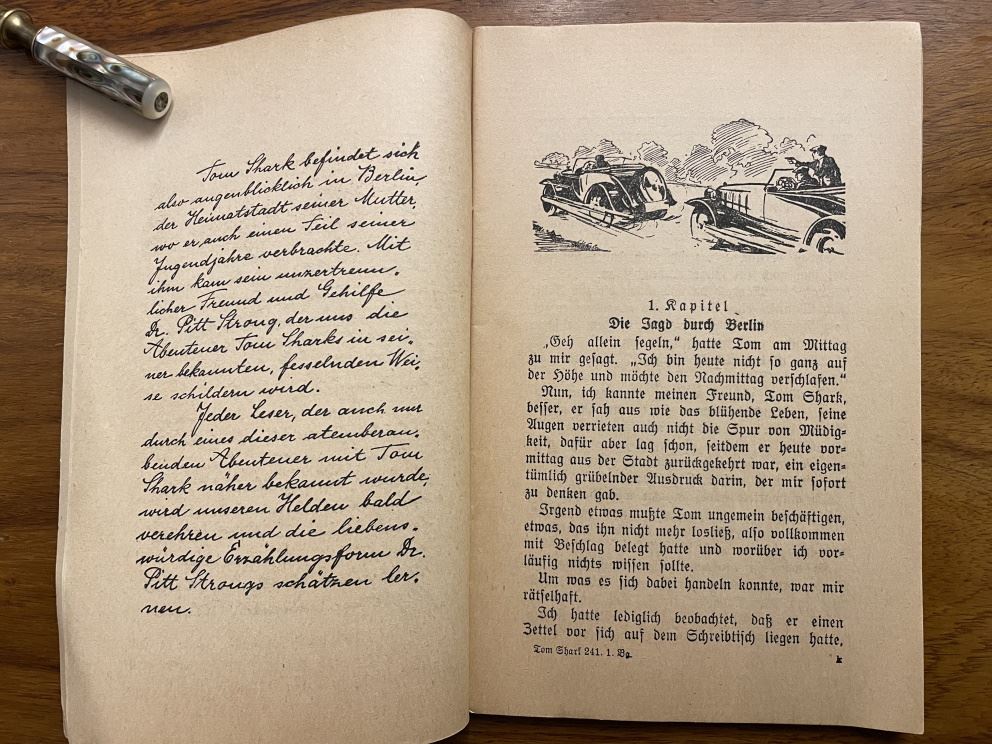 Tom Shark befindet sich
also augenblicklich in Berlin,
der Heimatstadt seiner Mutter,
wo er auch einen Teil seiner
Jugendjahre verbrachte. Mit
ihm kam sein unzertrenn-
licher Freund und Gehilfe
Dr. Pitt Strong, der uns die
Abenteuer Tom Sharks in sei-
ner bekannten, fesselnden Wei-
se schildern wird.
Jeder Leser, der auch nur
durch eines dieser atemberau-
benden Abenteuer mit Tom
Shark näher bekannt wurde,
wird unseren Helden bald
verehren und die liebens-
würdige Erzählungsform Dr.
Pitt Strongs schätzen ler-
nen.
1. Kapitel
Die Jagd durch Berlin
„Geh allein segeln,“ hatte Tom am Mittag
zu mir gesagt. „Ich bin heute nicht so ganz auf
der Höhe und möchte den Nachmittag verschlafen.“
Nun, ich kannte meinen Freund, Tom Shark,
besser, er sah aus wie das blühende Leben, seine
Augen verrieten auch nicht die Spur von Müdig-
keit, dafür aber lag schon, seitdem er heute vor-
mittag aus der Stadt zurückgekehrt war, ein eigen-
tümlich grübelnder Ausdruck darin, der mir sofort
zu denken gab.
Irgend etwas mußte Tom ungemein beschäftigen,
etwas, das ihn nicht mehr losließ, also vollkommen
mit Beschlag belegt hatte und worüber ich vor-
läufig nichts wissen sollte.
Um was es sich dabei handeln konnte, war mir
rätselhaft.
Ich hatte lediglich beobachtet, daß er einen
Zettel vor sich auf dem Schreibtisch liegen hatte,
Tom Shark 241. 1. Bg.
k